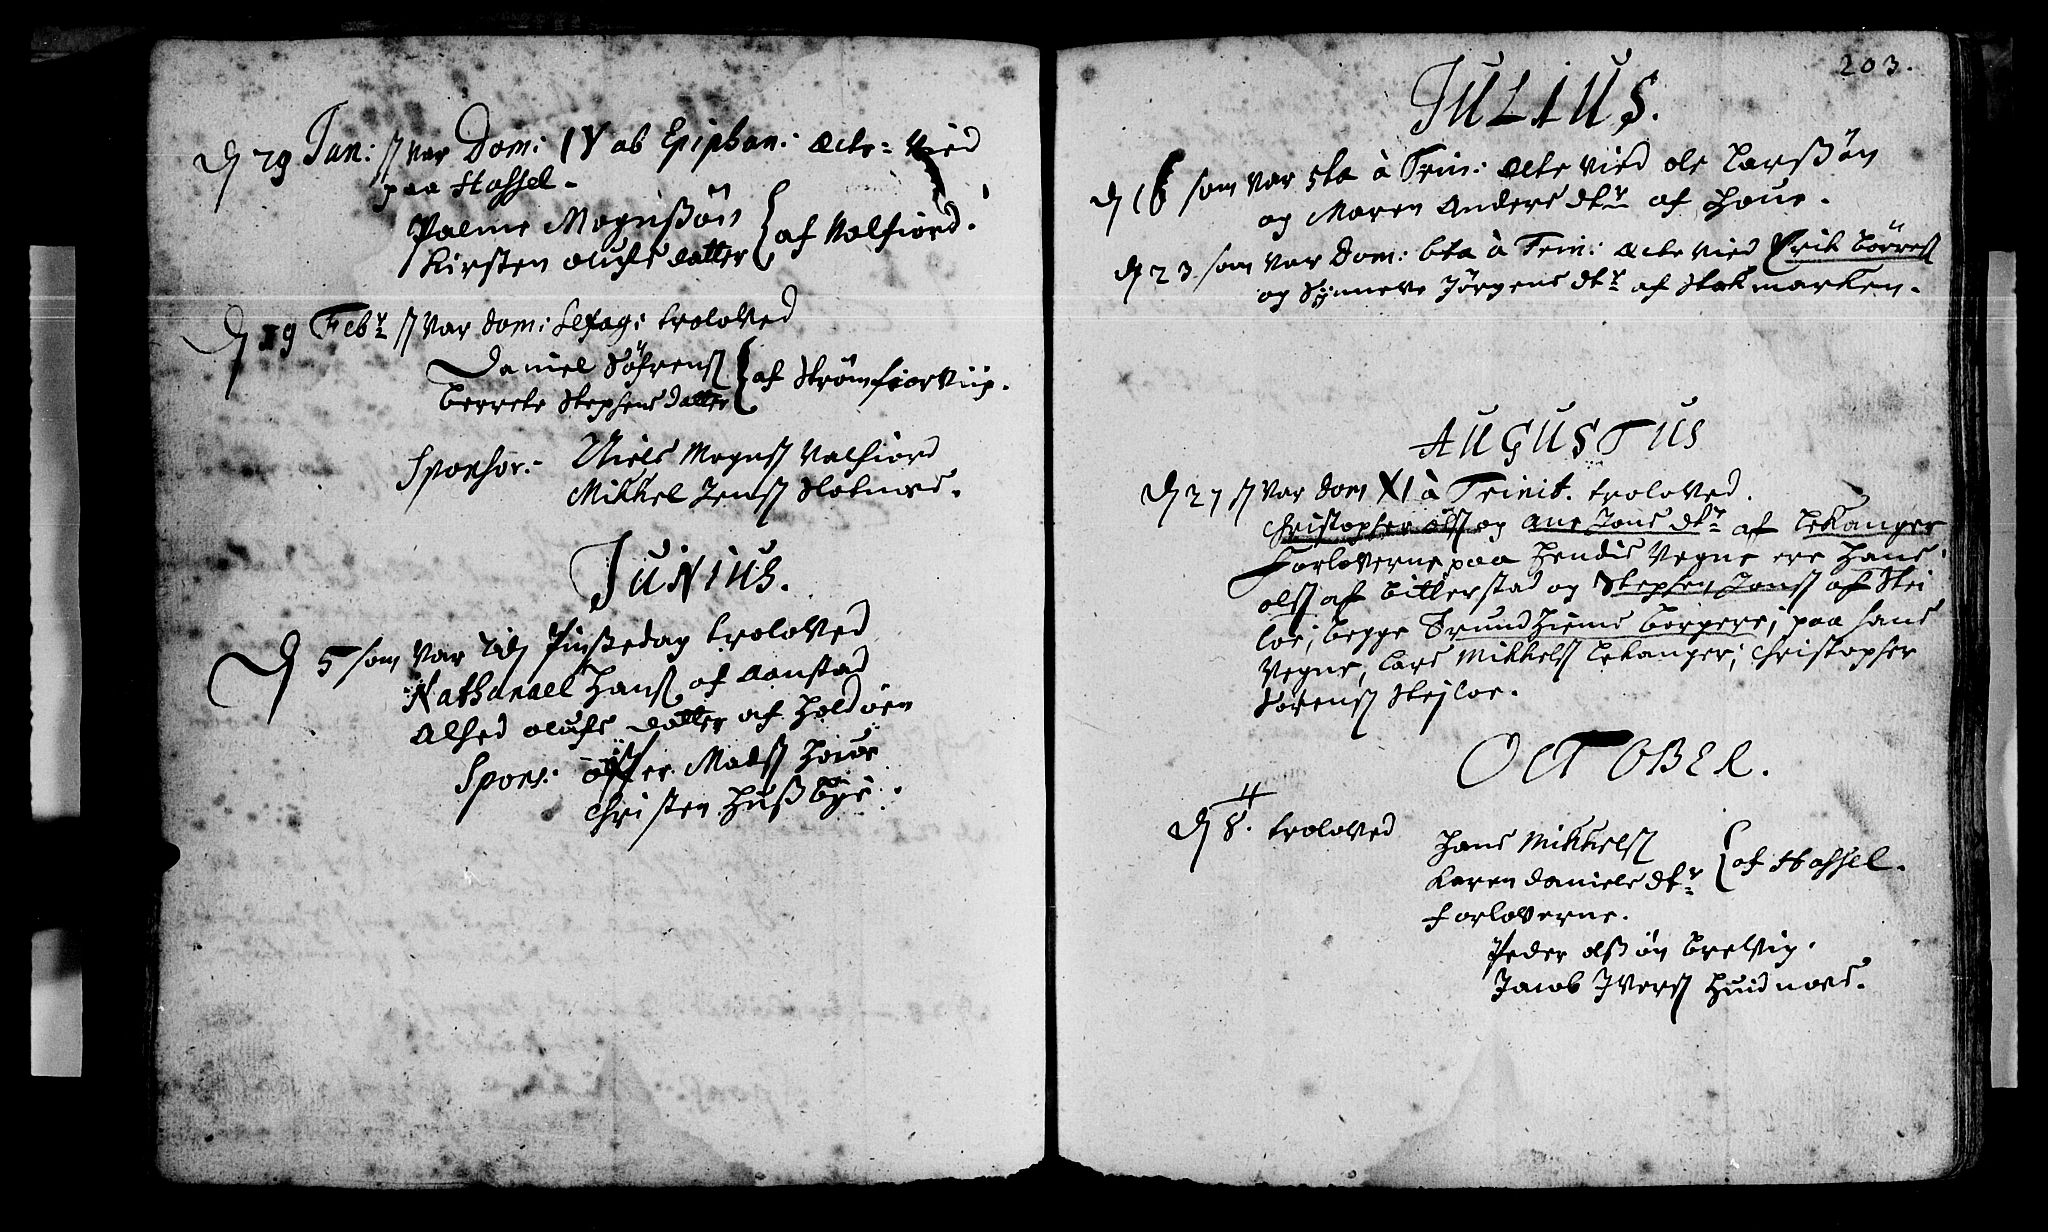 D 29 Jan: s var Dom: IV ab Epiphan: Ecte-Vied
paa Hassel.
Palme Mognsßøn
Kirsten olufs datter } af Valfiord.
D 19 Febr s var Dom: Sexag: troloved
Daniel Søfrens
Berrete Stephensdatter } af Strømfiorviig.
Sponsor:- Niels Mogns Valfiord
Mikkel Jens Slotnæs.
JUNIUS.
D 5 som var 2den Pinßedag troloved
Nathanael Hans af Aanstad
Alhed olufs datter af Holdøen
Spons: Mads Houe
Christen Hußbye.
203.
JULIUS.
D 16 som var 5ta à Trin: Ecte vied ole Larßøn
og Maren Anders dtr af Houe.
D 23 som var Dom: 6ta à Trin: Ecte vied Erik Børres
og Synneve Jørgens dtr af Stokmarken.
AUGUSTUS
D 27 s var Dom XI à Trinit. troloved.
Christopher ols og Ane Jons dtr af Lekanger
Forloverne paa hendis Vegne ere Hans
ols af Bitterstad og Stephen Jons af Stei
loe; begge Trundhiems borgere; paa hans
Vegne, Lars Mikkels Lekanger; Christopher
Sørens Stejloe.
OCTOBER.
D 8. troloved Hans Mikkels
Karen Daniels dtr } af Hassel.
Forloverne.
Peder olßøn Brelvig.
Jacob Ivers Huidnæs.